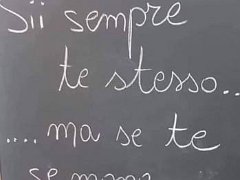 Sii sempre
te stesso..
....ma se te
se